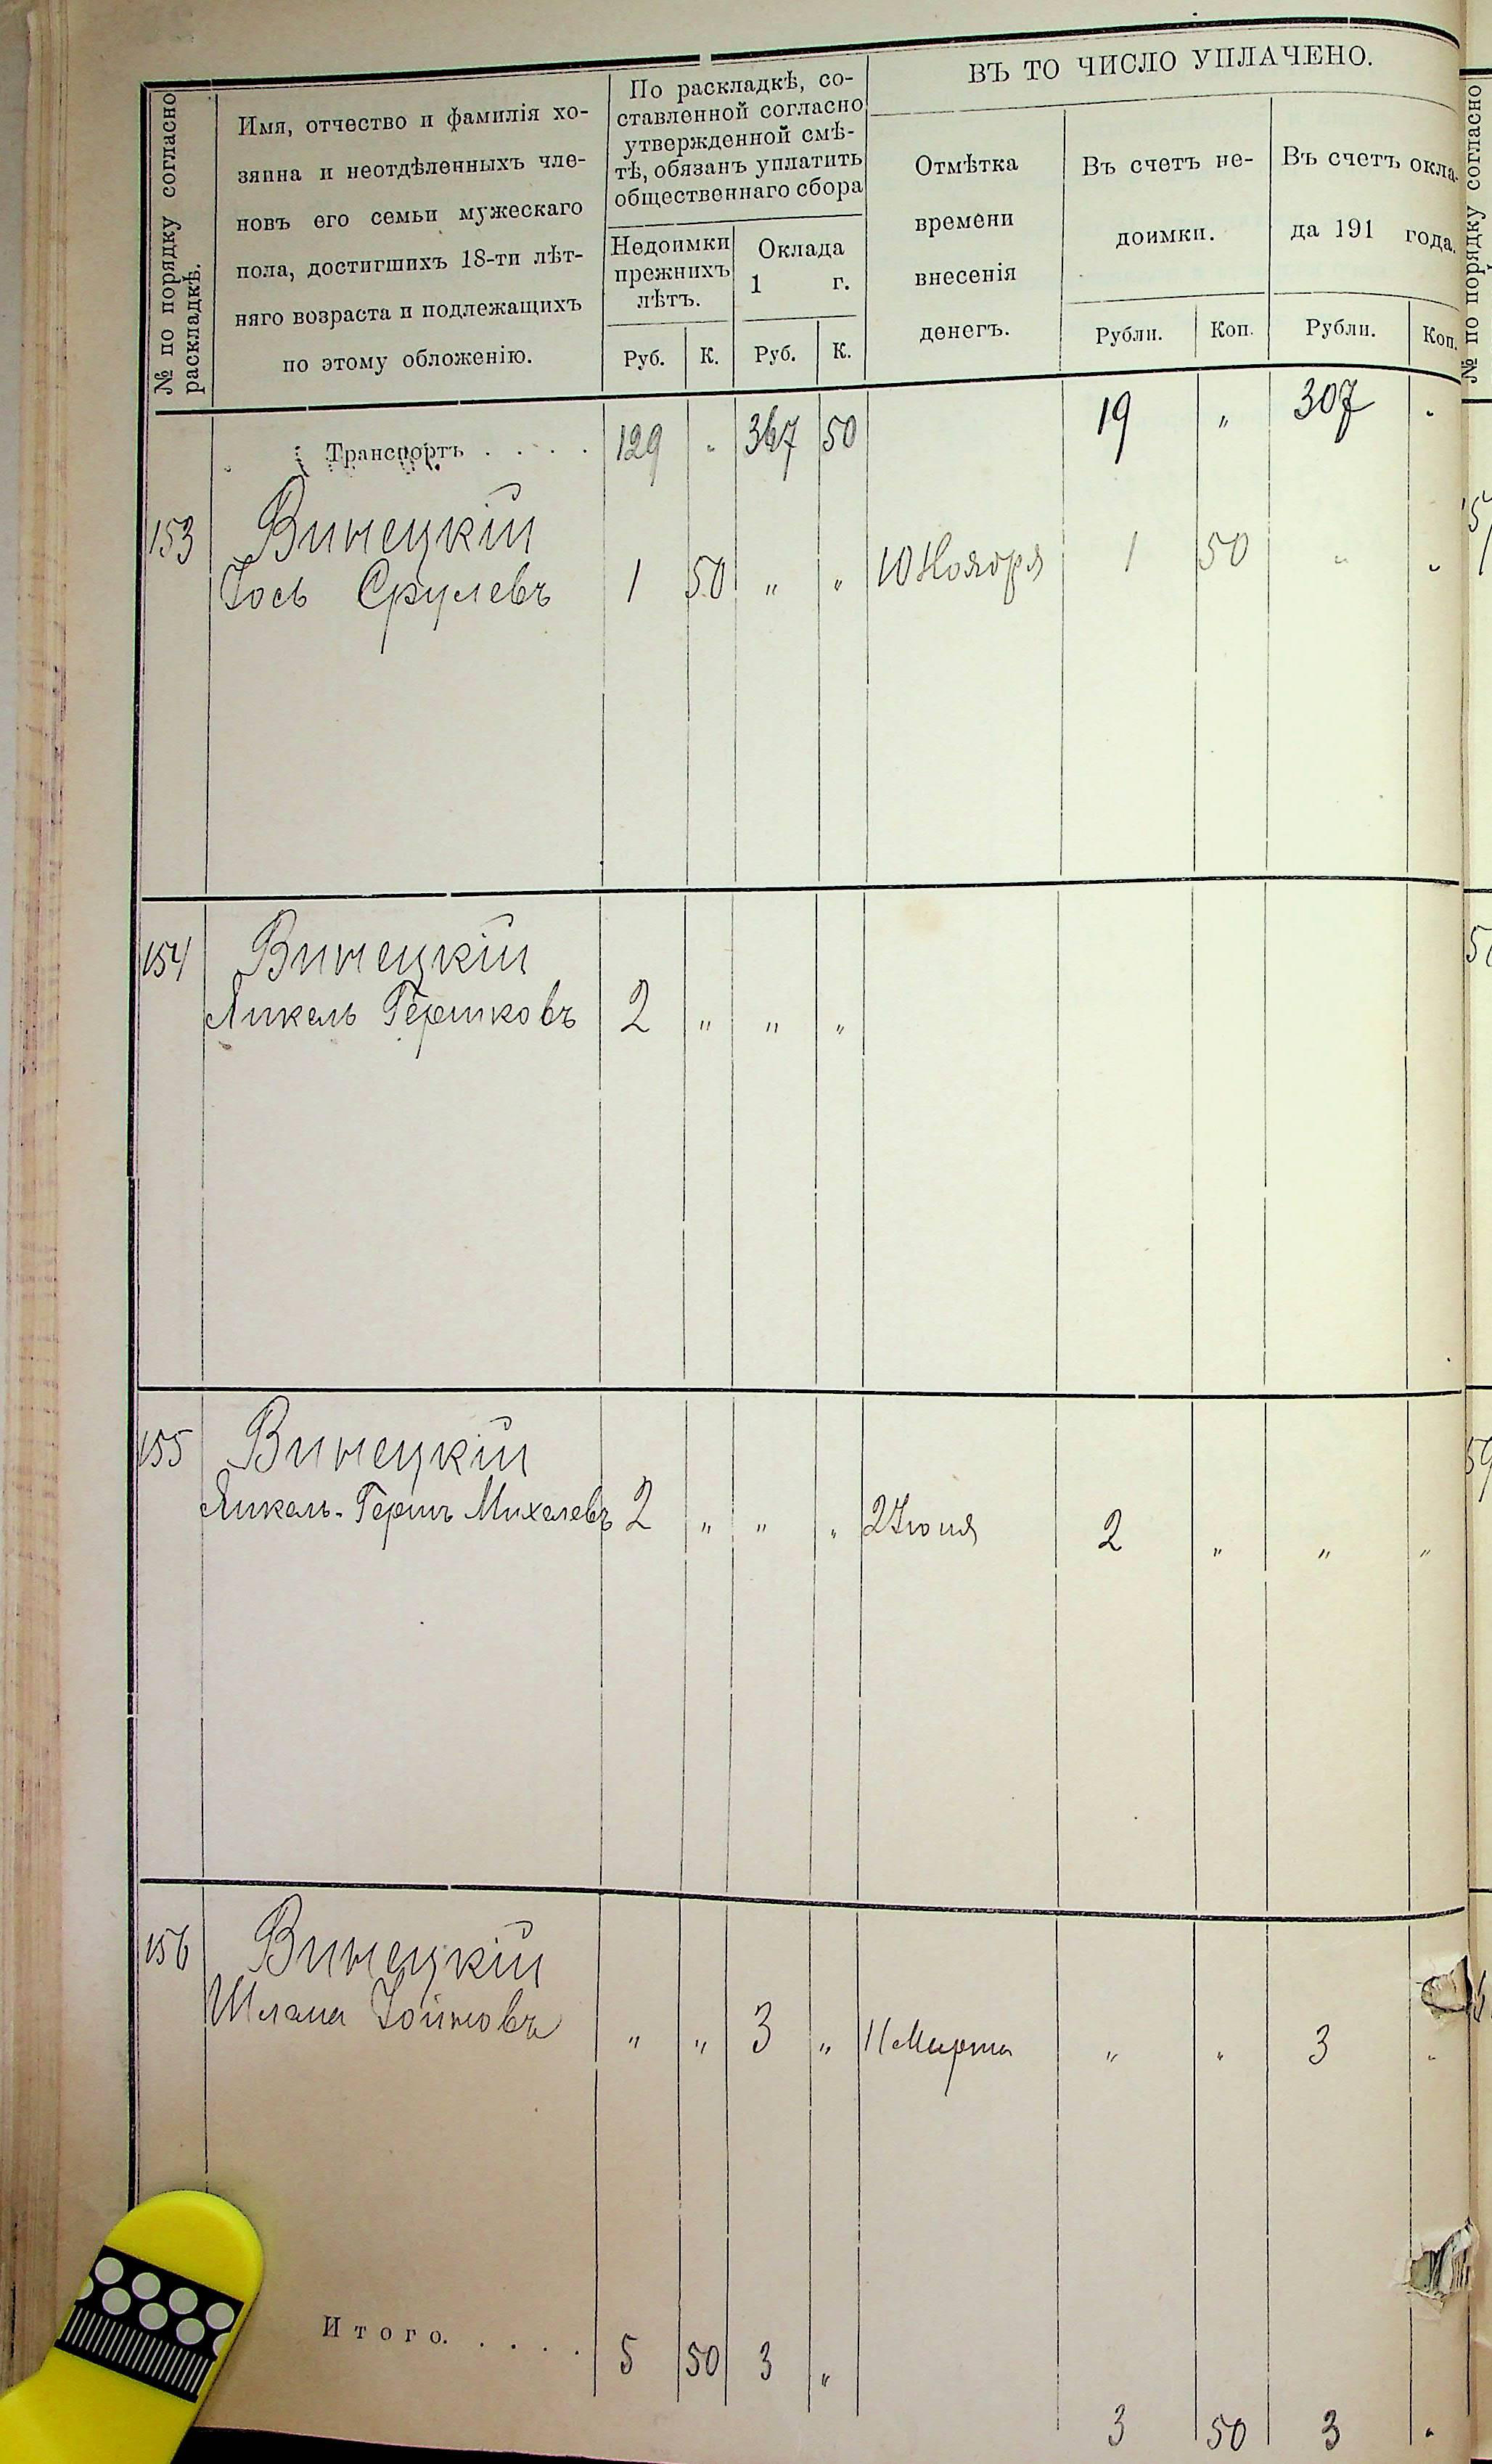 № по порядку согласно
раскладкѣ.
Имя, отчество и фамилія хо-
зяина и неотдѣленныхъ чле-
новъ его семьи мужескаго
пола, достигшихъ 18-ти лѣт-
няго возраста и подлежащихъ
по этому обложенію.
По раскладкѣ, со-
ставленной согласно
утвержденной смѣ-
тѣ, обязанъ уплатить
общественнаго сбора
Недоимки
прежнихъ
лѣтъ.
Оклада
1 г.
Руб. К. Руб. К.
ВЪ ТО ЧИСЛО УПЛАЧЕНО.
Отмѣтка
времени
внесенія
денегъ.
Въ счетъ не-
доимки.
Въ счетъ окла-
да 191 года.
Рубли. Коп. Рубли. Коп.
№ по порядку согласно
Транспортъ . . . . 129 " 367 50 19 " 307 "
153 Винецкій
Іось Срулевъ 1 50 " " 10 Ноября 1 50 " "
154 Винецкій
Янкель Гершковъ 2 " " "
155 Винецкій
Янкель-Гершъ Михелевъ 2 " " " 2 Іюня 2 " " "
156 Винецкій
Шлема Хоимовъ " " 3 " 11 Марта " " 3 "
Итого. . . . . 5 50 3 "
3 50 3 "